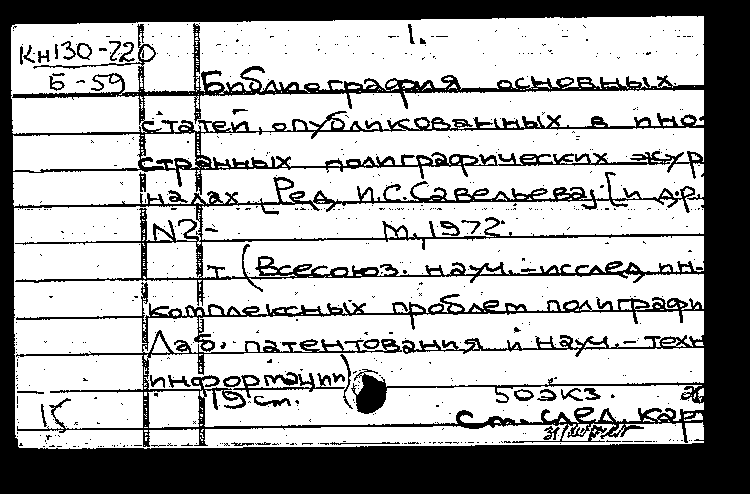 1.
Кн130-720
Б-59
Библиография основных
статей, опубликованных в ино-
странных полиграфических жур
налах [Ред. И.С.Савельева].[и др.
N2- М.,1972.
т (Всесоюз. науч.-исслед. ин-
комплексных проблем полиграфи
Лаб. патентования и науч.-техн
информации)
19 см. 50экз.
15
См. след. кар